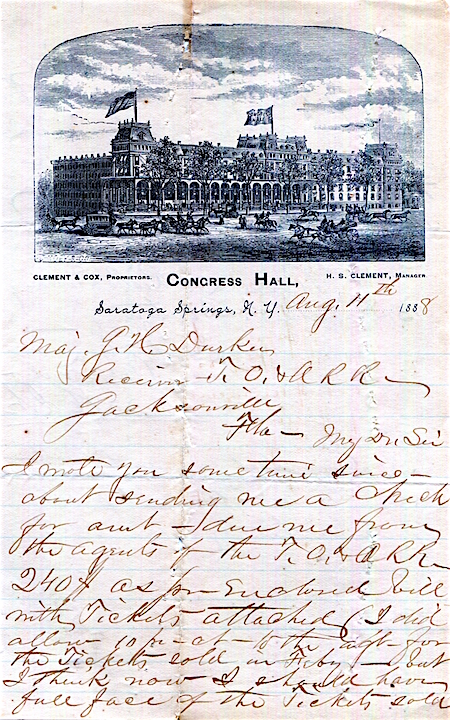 CLEMENT & COX, PROPRIETORS. CONGRESS HALL, H. S. CLEMENT, MANAGER
Saratoga Springs, N. Y. Aug. 11th 1888
Maj. J. H. Durkee
Receiver F. O. & A R R
Jacksonville
Fla — My Dr. Sir
I wrote you some time since —
about sending me a check
for amt — due me from
the agents of the F. O. & A R R
240 as per Enclosed bill
with Tickets attached I did
allow 10 pr ct — to the agt for
the Tickets sold in Feby — but
I think now I should have
full face of the Tickets sold